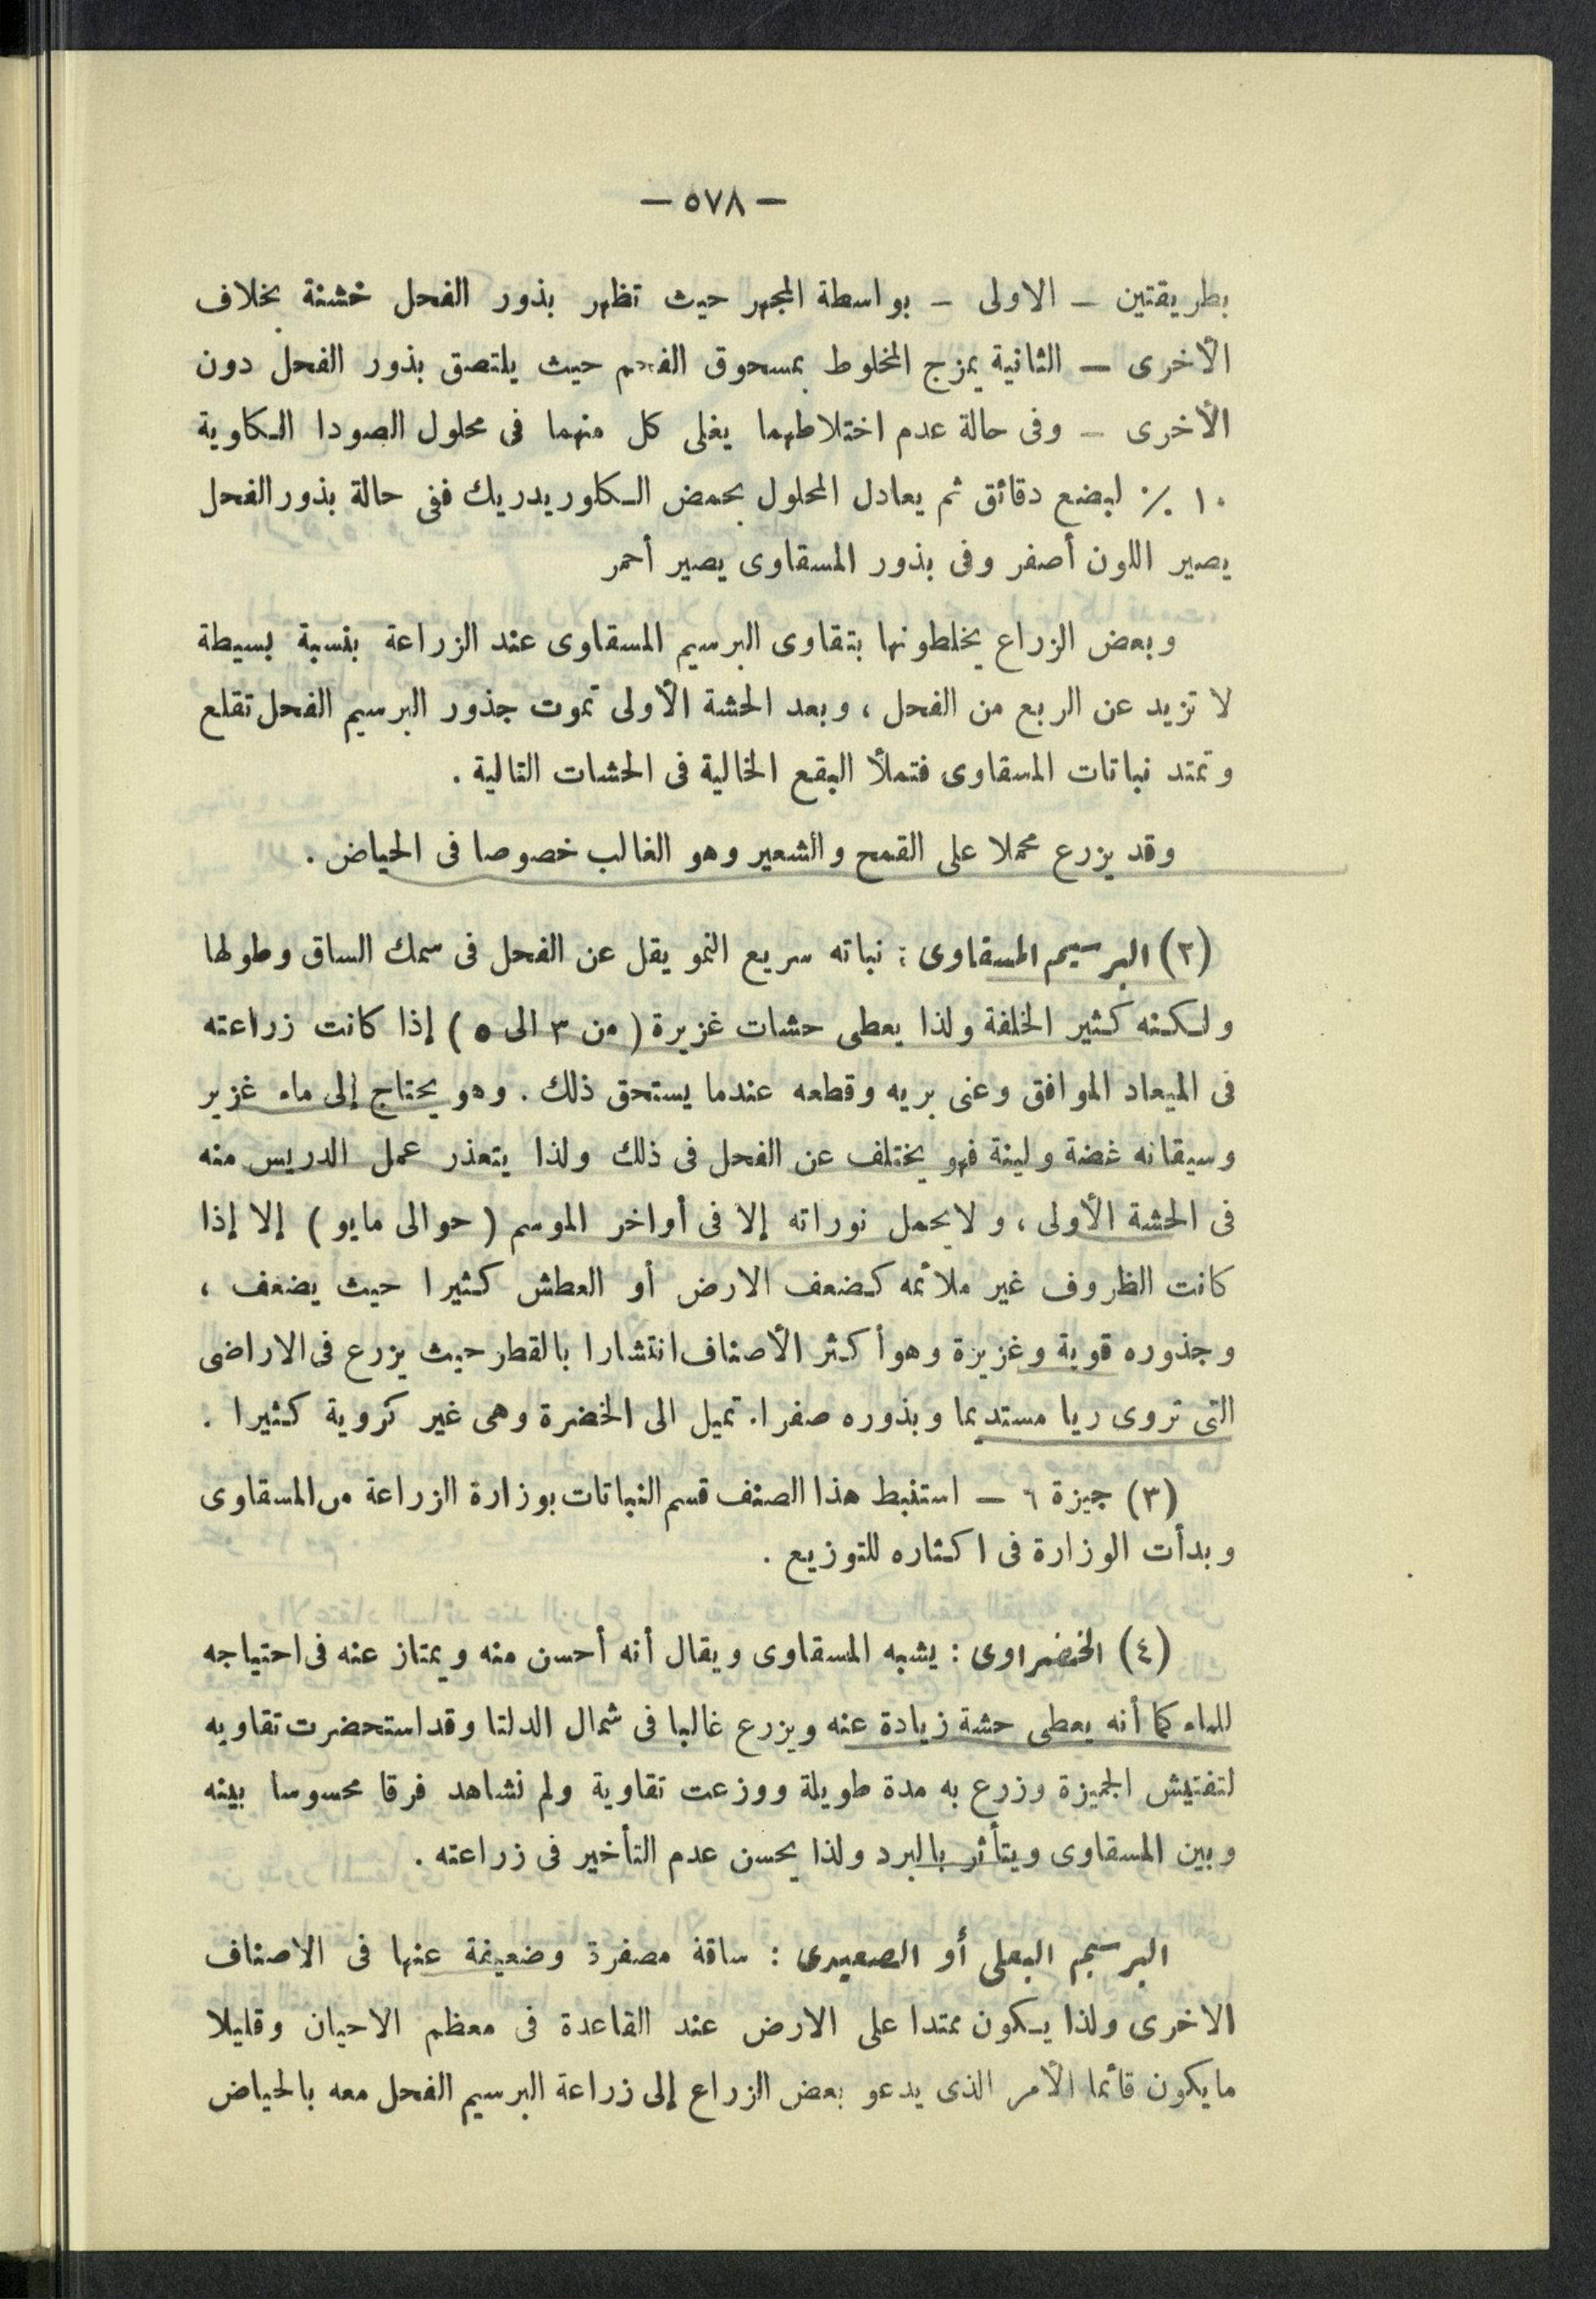 — ٥٧٨ —
بطريقتين — الاولى — بواسطة المجهر حيث تظهر بذور الفحل خشنة بخلاف
الأخرى — الثانية بمزج المخلوط بمسحوق الفحم حيث يلتصق بذور الفحل دون
الأخرى — وفى حالة عدم اختلاطهما يغلى كل منهما فى محلول الصودا الكاوية
١٠ ٪ لبضع دقائق ثم يعادل المحلول بحمض الكلوريدريك ففى حالة بذور الفحل
يصير اللون أصفر وفى بذور المسقاوى يصير أحمر
وبعض الزراع يخلطونها بتقاوى البرسيم المسقاوى عند الزراعة بنسبة بسيطة
لا تزيد عن الربع من الفحل ، وبعد الحشة الأولى تموت جذور البرسيم الفحل تقلع
وتمتد نباتات المسقاوى فتملأ البقع الخالية فى الحشات التالية .
وقد يزرع محملا على القمح والشعير وهو الغالب خصوصا فى الحياض .
(٢) البرسيم المسقاوى : نباته سريع النمو يقل عن الفحل فى سمك الساق وطولها
ولكنه كثير الخلفة ولذا يعطى حشات غزيرة ( من ٣ الى ٥ ) إذا كانت زراعته
فى الميعاد الموافق وعنى بريه وقطعه عندما يستحق ذلك . وهو يحتاج إلى ماء غزير
وسيقانه غضة ولينة فهو يختلف عن الفحل فى ذلك ولذا يتعذر عمل الدريس منه
فى الحشة الأولى ، ولا يحمل نوراته إلا فى أواخر الموسم ( حوالى مايو ) إلا إذا
كانت الظروف غير ملائمه كضعف الارض أو العطش كثيرا حيث يضعف ،
وجذوره قوية وغزيرة وهو أكثر الأصناف انتشارا بالقطر حيث يزرع فى الاراضى
التى تروى ريا مستديما وبذوره صفراء تميل الى الخضرة وهى غير كروية كثيرا .
(٣) جيزة ٦ — استنبط هذا الصنف قسم النباتات بوزارة الزراعة من المسقاوى
وبدأت الوزارة فى اكثاره للتوزيع .
(٤) الخضراوى : يشبه المسقاوى ويقال أنه أحسن منه ويمتاز عنه فى احتياجه
للماء كما أنه يعطى حشة زيادة عنه ويزرع غالبا فى شمال الدلتا وقد استحضرت تقاويه
لتفتيش الجميزة وزرع به مدة طويلة ووزعت تقاوية ولم نشاهد فرقا محسوسا بينه
وبين المسقاوى ويتأثر بالبرد ولذا يحسن عدم التأخير فى زراعته .
البرسيم البعلى أو الصعيدى : ساقة مصفرة وضعيفة عنها فى الاصناف
الاخرى ولذا يكون ممتدا على الارض عند القاعدة فى معظم الاحيان وقليلا
ما يكون قائما الأمر الذى يدعو بعض الزراع إلى زراعة البرسيم الفحل معه بالحياض